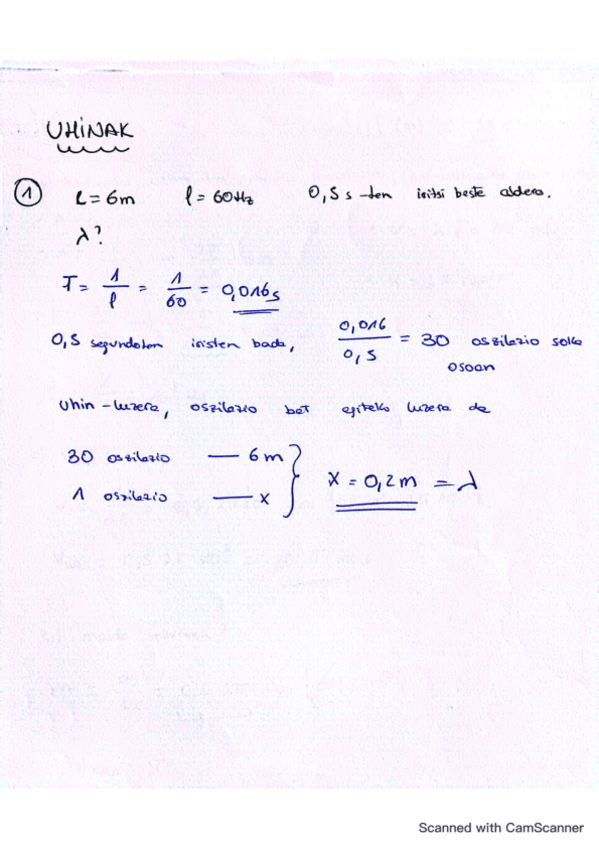 UHiNAK
① L = 6m f = 60Hz 0,5 s-tan iritsi beste aldera.
λ?
T = 1/f = 1/60 = 0,016s
0,5 segundotan iristen bada, 0,016/0,5 = 30 oszilazio soka
osoan
Uhin-luzera, oszilazio bat egiteko luzera da
30 oszilazio — 6m
1 oszilazio — x } x = 0,2m = λ
Scanned with CamScanner